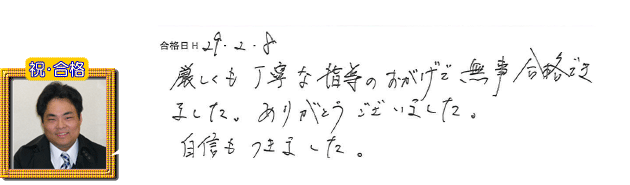 祝・合格
合格日 H 29.2.8
厳しくも丁寧な指導のおかげで無事合格でき
ました。ありがとうございました。
自信もつきました。